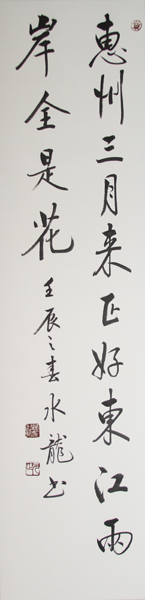 惠州三月来正好東江兩
岸全是花
壬辰之春水龍书